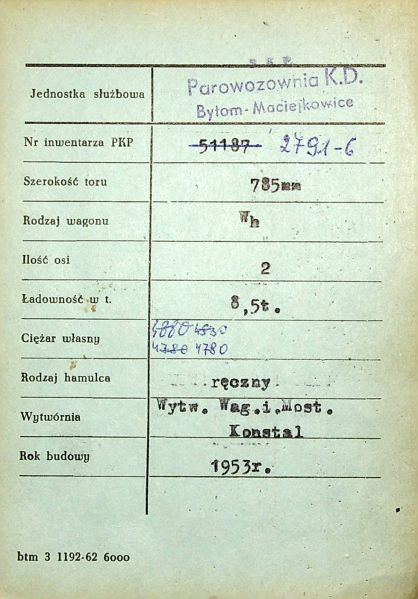 P K P
Jednostka służbowa
Parowozownia K.D.
Bytom-Maciejkowice
Nr inwentarza PKP 51187 2791-6
Szerokość toru 785mm
Rodzaj wagonu Wh
Ilość osi 2
Ładowność w t. 8,5t.
4880 4830
Ciężar własny
4780 4780
Rodzaj hamulca ręczny
Wytw. Wag.i.Most.
Wytwórnia
Konstal
Rok budowy 1953r.
btm 3 1192-62 6000